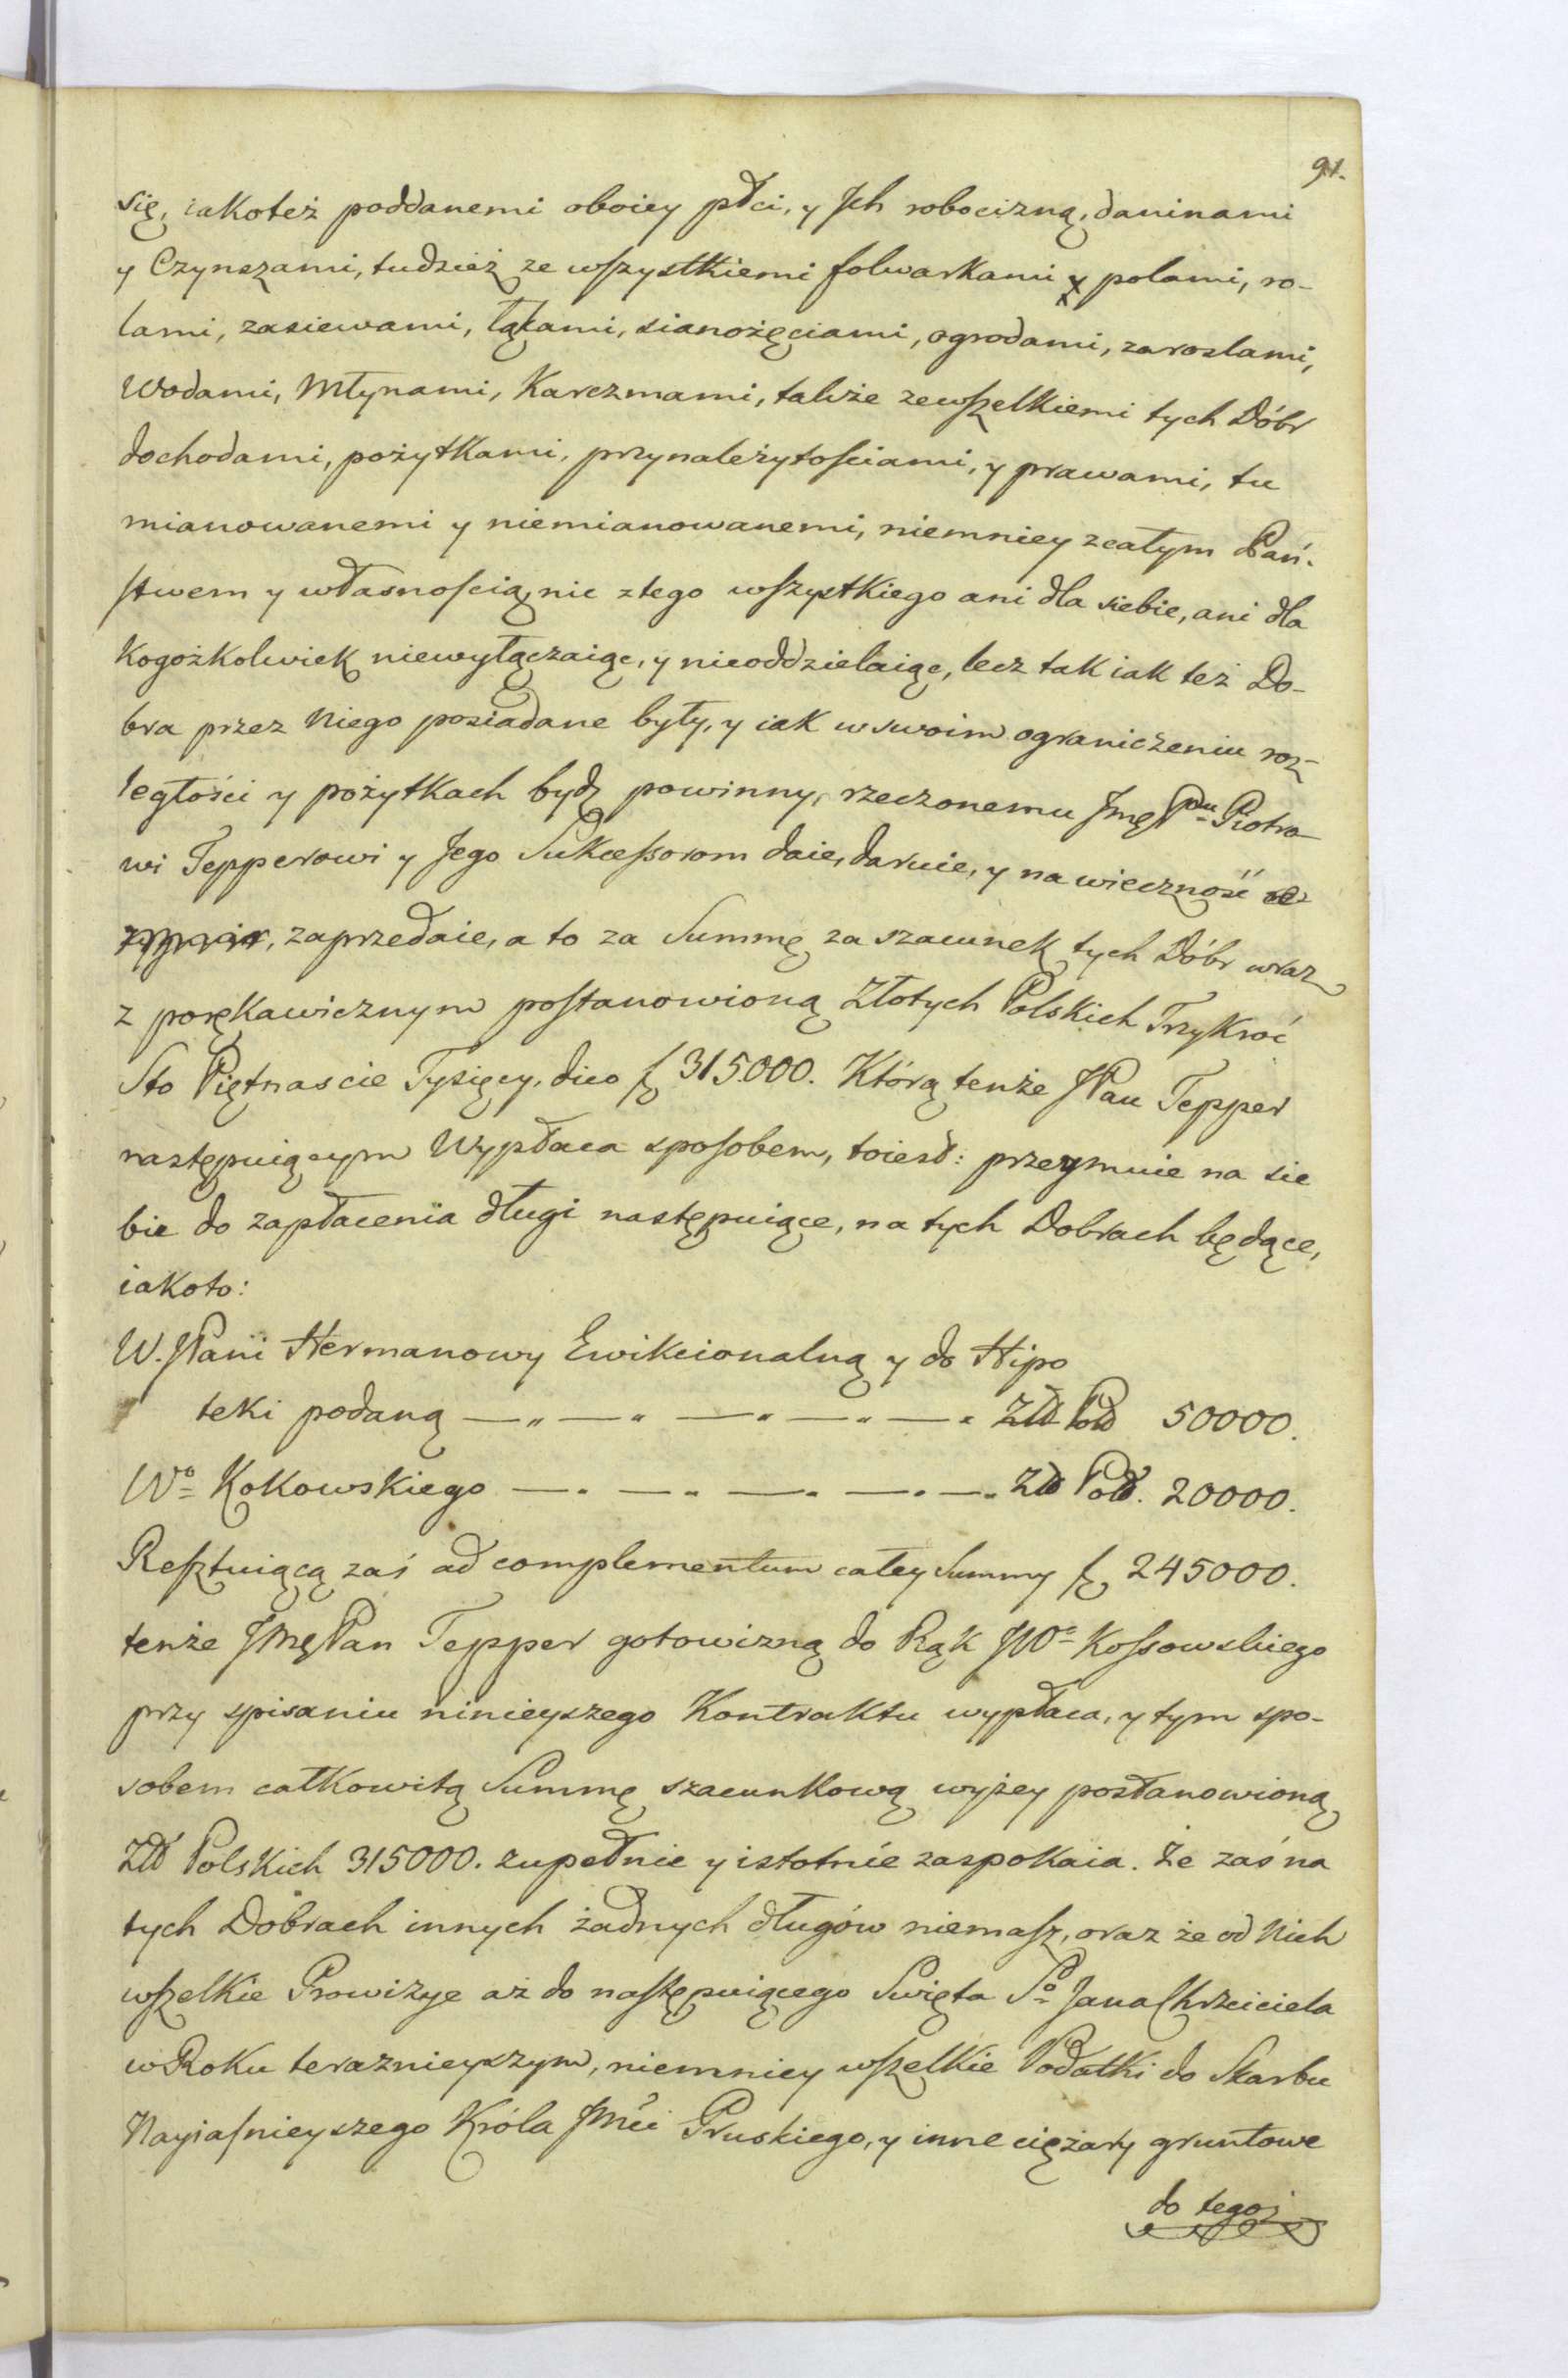 91.
się, iakoteż poddanemi oboiey płci, y Jch robocizną, daninami
y Czynszami, tudzież ze wszystkiemi folwarkami y polami, ro-
lami, zasiewami, łąkami, sianożęciami, ogrodami, zaroslami,
Wodami, Młynami, Karczmami, także zewszelkiemi tych Dóbr
dochodami, pożytkami, przynależytościami, y prawami, tu
mianowanemi y niemianowanemi, niemniey zcałym Pań-
stwem y własnością, nic ztego wszystkiego ani dla siebie, ani dla
Kogożkolwiek niewyłączaiąc, y nieoddzielaiąc, lecz tak iak też Do-
bra przez Niego posiadane były, y iak w swoim ograniczeniu roz-
ległości y pożytkach bydź powinny, rzeczonemu JmęPnu Piotro-
wi Tepperowi y Jego Sukcessorom daie, daruie, y na wieczność
zaprzedaie, a to za Summę za szacunek tych Dóbr wraz
z porękawicznym postanowioną Złotych Polskich TrzyKroć
Sto Piętnascie Tysięcy, dico f 315.000. Którą tenże JPan Tepper
następuiącym Wypłaca sposobem, toiest: przeymuie na sie
bie do zapłacenia długi następuiące, na tych Dobrach będące,
iakoto:
W. JPani Hermanowy Ewikcionalną y do Hipo
teki podaną —„—„ —„—„—„ Złł Poł 50000.
Wo Kokowskiego —„—„—„—„—„ Zł Poł. 20000.
Resztuiącą zaś ad complementum całey Summy f 245000.
tenże JmęPan Tepper gotowizną do Rąk JWo Kossowskiego
przy spisaniu ninieyszego Kontraktu wypłaca, y tym spo-
sobem całkowitą Summę szacunkową wyżey postanowioną
Złł Polskich 315000. zupełnie y istotnie zaspokaia. Że zaś na
tych Dobrach innych żadnych długów niemasz, oraz że od Nich
wszelkie Prowizye aż do następuiącego Swięta So Jana Chrzciciela
w Roku terazniejszym, niemniey wszelkie Podatki do Skarbu
Nayiasnieyszego Króla Jmci Pruskiego, y inne ciężary gruntowe
do tegoż